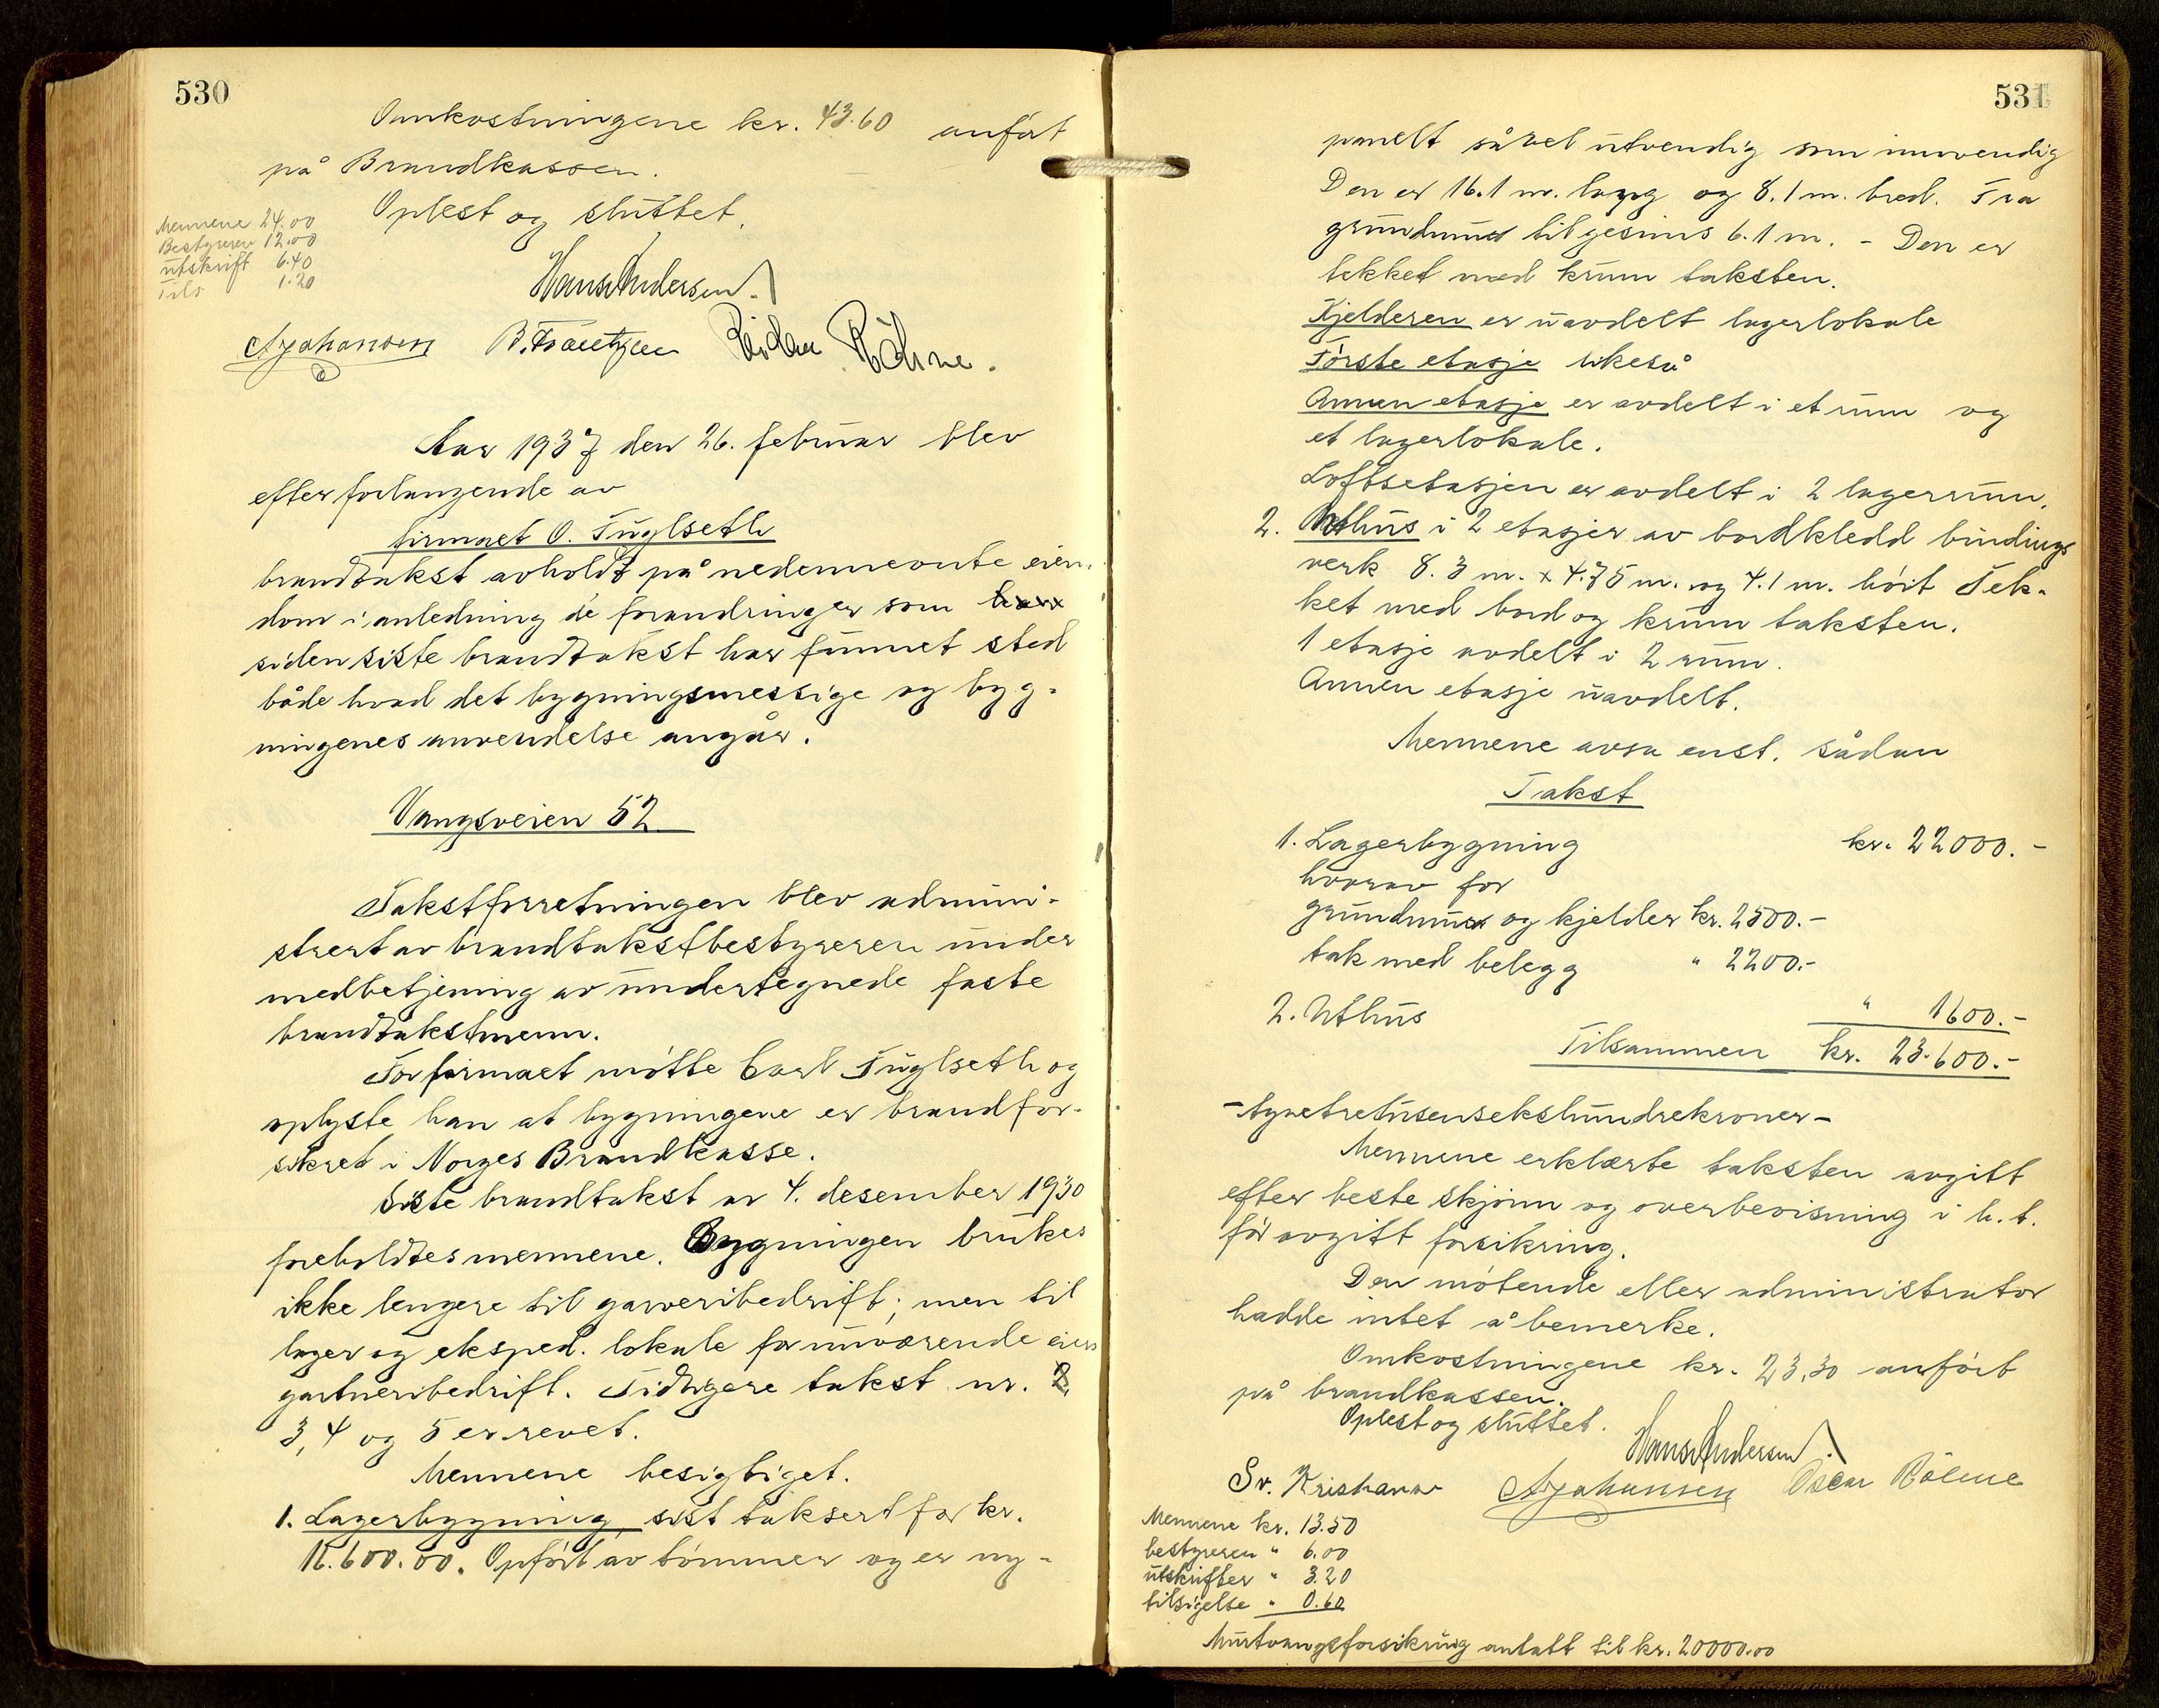 530
Omkostningene kr. 43.60 anført
på Brandkassen.
Oplest og sluttet.
Mennene 24.00
Bestyreren 12.00
utskrift 6.40
Tils 1.20
Hans Andersen.
A Johansen B. Reidar Bøhne.
Aar 1937 den 26. februar blev
efter forlangende av
firmaet O. Fuglseth
brandtakst avholdt på nedennevnte eien-
dom i anledning de forandringer som
siden siste brandtakst har funnet sted
både hvad det bygningsmessige og byg-
ningenes anvendelse angår.
Vangsveien 52
Takstforretningen blev admini-
strert av brandtakstbestyreren under
medbetjening av undertegnede faste
brandtakstmenn.
For firmaet møtte Carl Fuglseth og
oplyste han at bygningene er brandfor-
sikret i Norges Brandkasse.
Siste brandtakst av 4. desember 1930
foreholdtes mennene. Bygningen brukes
ikke lengere til garveribedrift; men til
lager og eksped. lokale for nuværende eiers
gartneribedrift. Tidligere takst nr. 2,
3, 4 og 5 er revet.
Mennene besigtiget.
1. Lagerbygning, sist taksert for kr.
16.600.00. Opført av tømmer og er ny-
531
panelt såvel utvendig som innvendig
Den er 16.1 m. lang og 8.1 m. bred. Fra
grundmur til gesims 6.1 m. - Den er
tekket med krum taksten.
Kjelderen er uavdelt lagerlokale
Første etasje likeså
Annen etasje er avdelt i et rum og
et lagerlokale.
Loftsetasjen er avdelt i 2 lagerrum.
2. Uthus i 2 etasjer av bordkledd bindings
verk 8.3 m. x 4.75 m. og 4.1 m. høit Tek-
ket med bord og krum taksten.
1 etasje avdelt i 2 rum.
Annen etasje uavdelt.
Mennene avsa enst. sådan
Takst
1. Lagerbygning kr. 22000.-
hvorav for
grundmur og kjelder kr. 2500.-
tak med belegg " 2200.-
2. Uthus " 1600.-
Tilsammen kr. 23.600.-
- tyvetretusensekshundrekroner -
Mennene erklærte taksten avgitt
efter beste skjønn og overbevisning i h. t.
før avgitt forsikring.
Den møtende eller administrator
hadde intet å bemerke.
Omkostningene kr. 23,30 anført
på brandkassen.
Oplest og sluttet.
Hans Andersen
Sv. Kristiansen A Johansen Oscar Bølme
Mennene kr. 13.50
bestyreren " 6.00
utskrifter " 3.20
tilsigelse " 0.60
Murtvangsforsikring antatt til kr. 20000.00